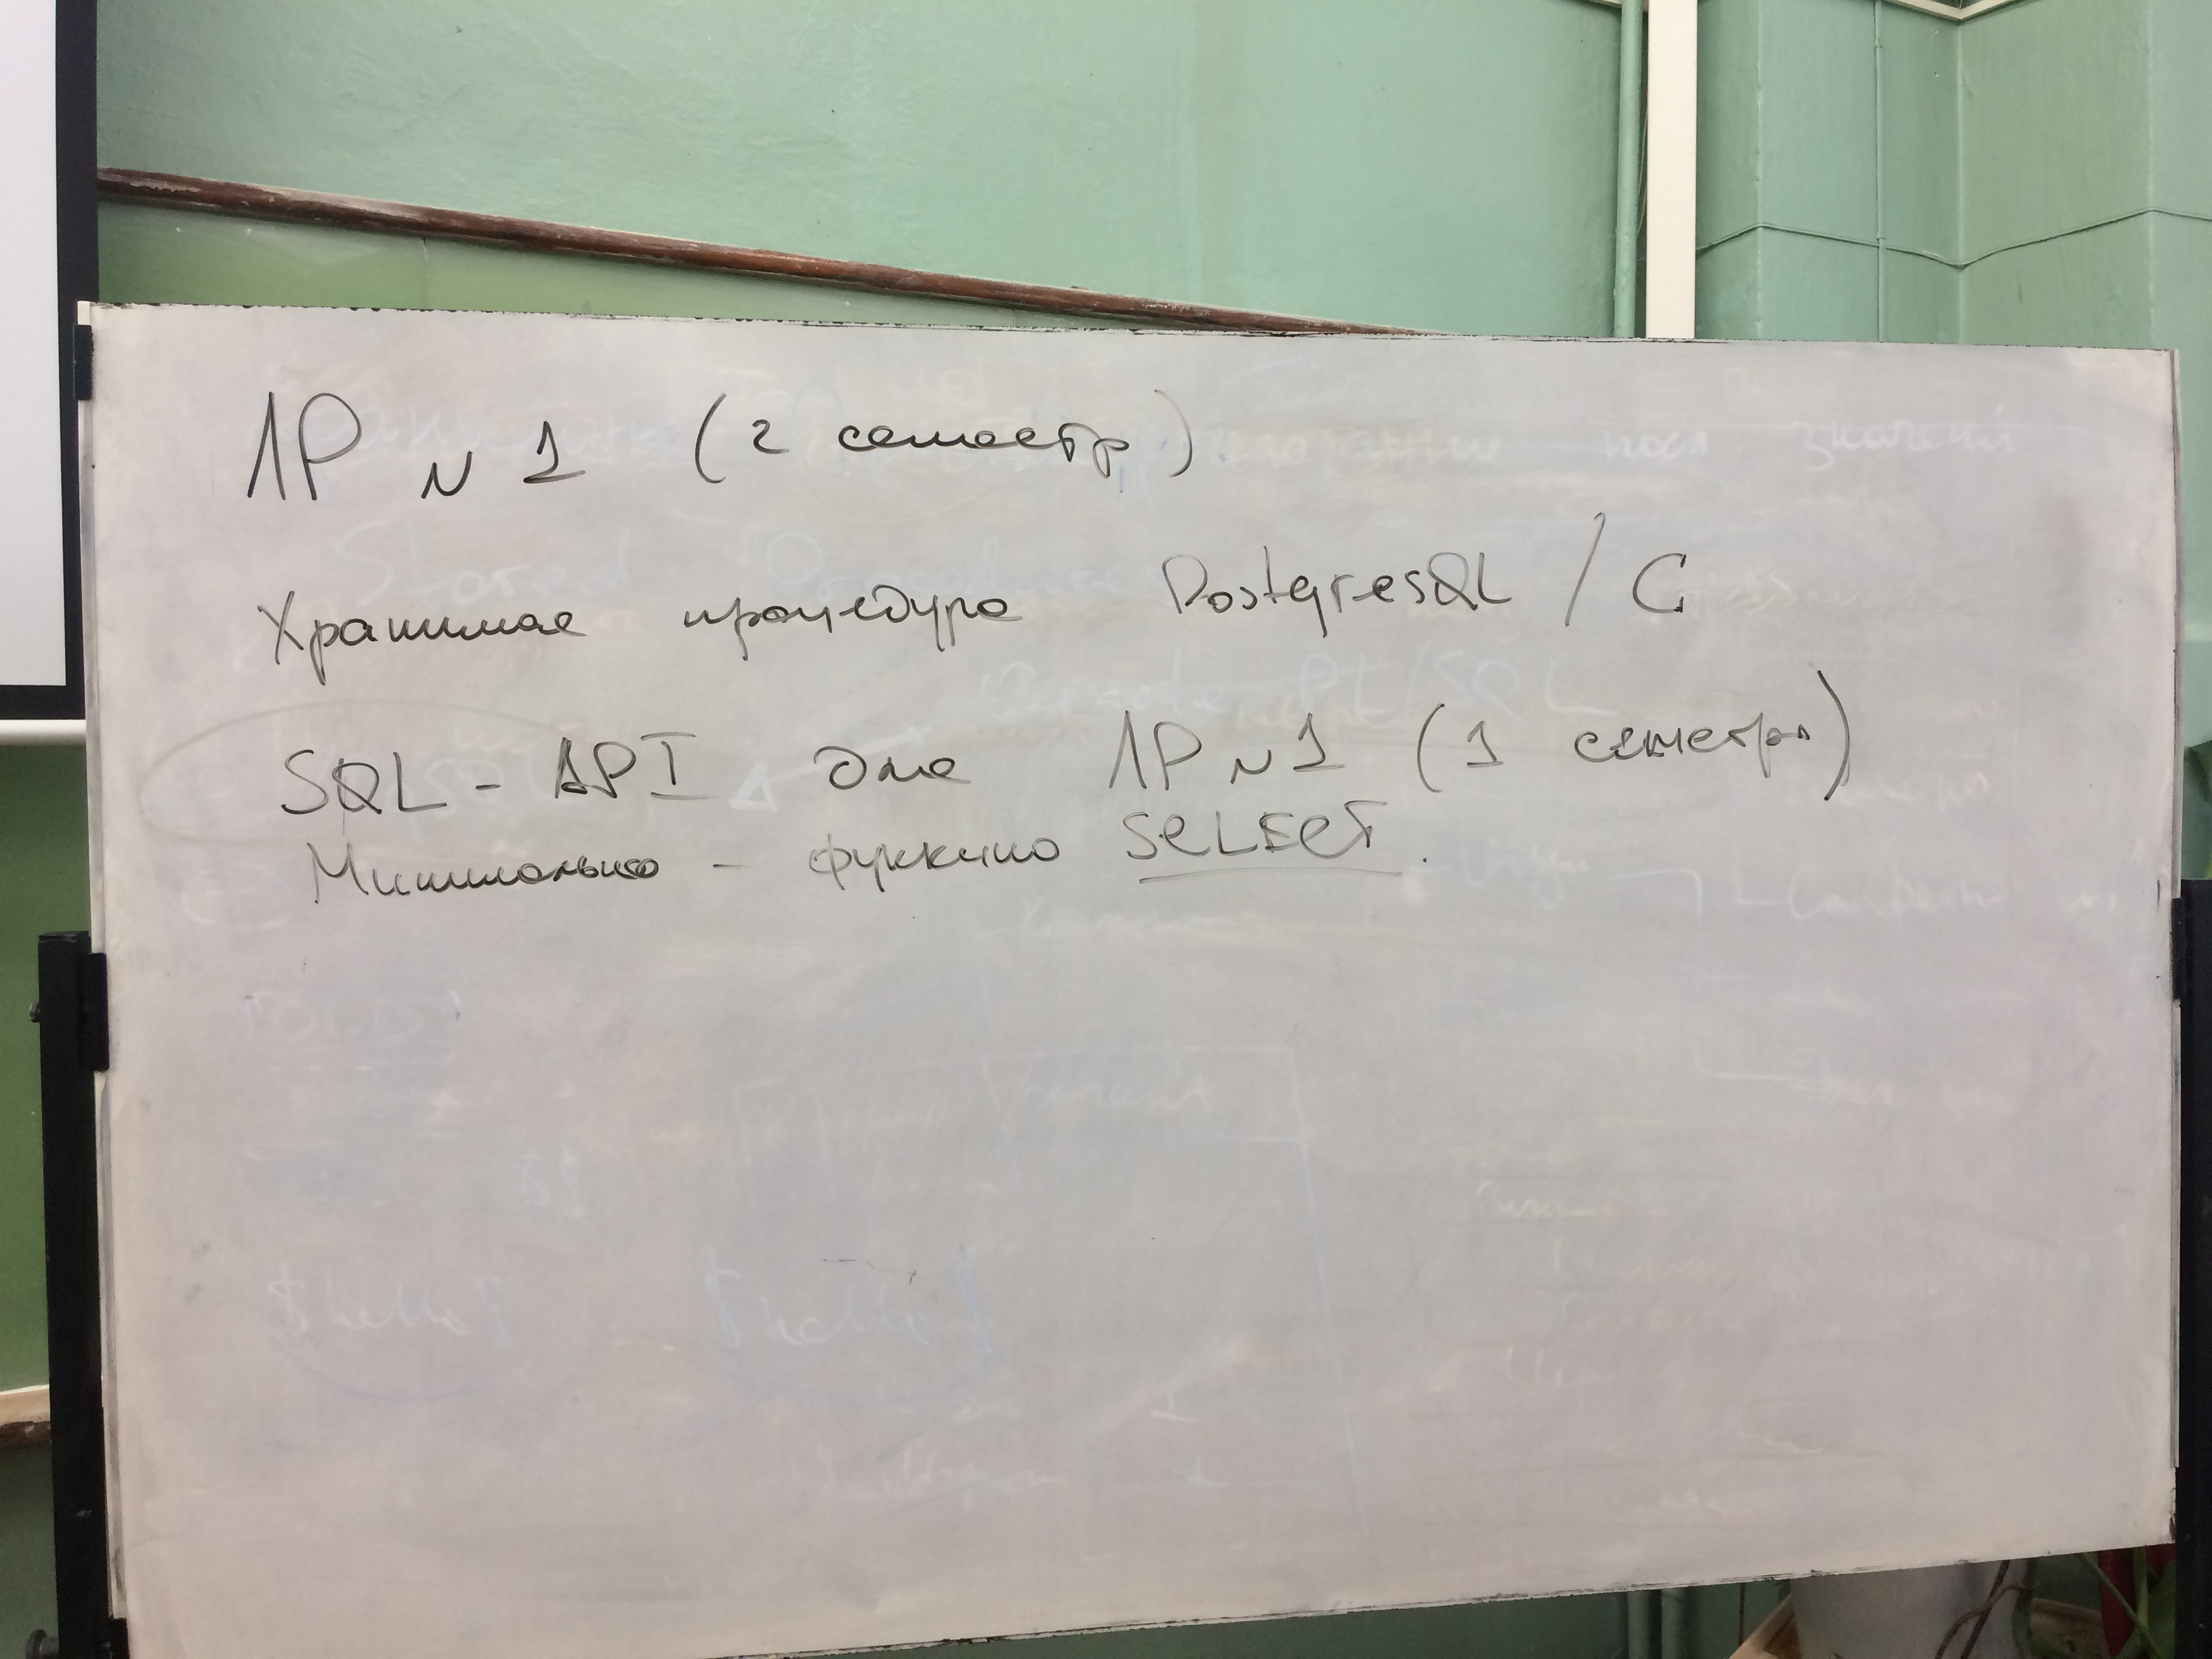 ЛР № 1 (2 семестр)
Хранимая процедура PostgreSQL / C
SQL - API для ЛР № 1 (1 семестра)
Минимально - функцию SELECT.